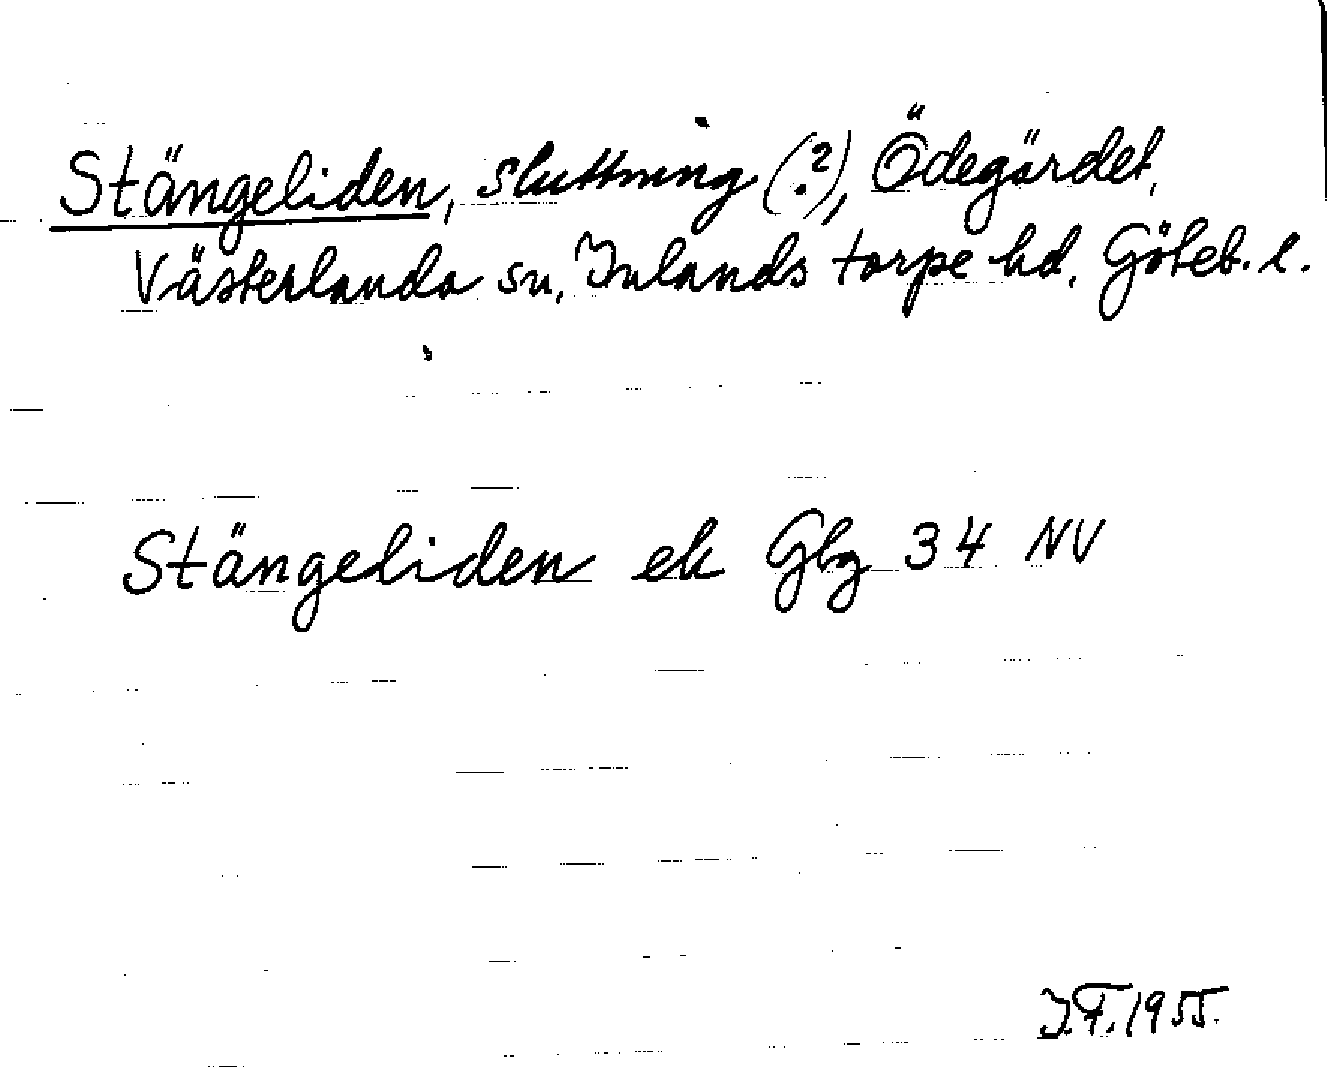 Stängeliden, sluttning (?), Ödegärdet,
Västerlanda sn, Inlands torpe hd, Göteb. l.
Stängeliden ek Gbg 34 NV
I.F. 1955.